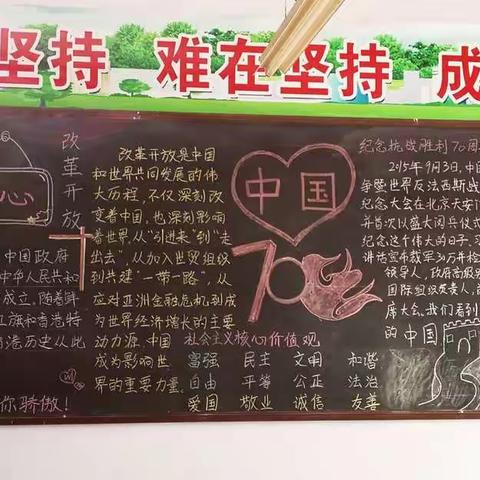 坚持 难在坚持 成
改革开放
心
中国政府
中华人民共和
成立,随着鲜
红旗和香港特
港历史从此
你骄傲!
改革开放是中国
和世界共同发展的伟
大历程,不仅深刻改
变着中国,也深刻影响
着世界,从“引进来”到“走
出去”,从加入世贸组织
到共建“一带一路”,从
应对亚洲金融危机到成
为世界经济增长的主要
动力源,中国
成为影响世
界的重要力量,
中国
70
社会主义核心价值观
富强 民主 文明 和谐
自由 平等 公正 法治
爱国 敬业 诚信 友善
纪念抗战胜利70周
2015年9月3日,中国
争暨世界反法西斯战
大会在北京天安门
并首次以盛大阅兵仪式
纪念这个伟大的日子,习
讲话宣布裁军30万并检
领导人,政府高级
国际组织负责人,
席大会。我们看到
的中国